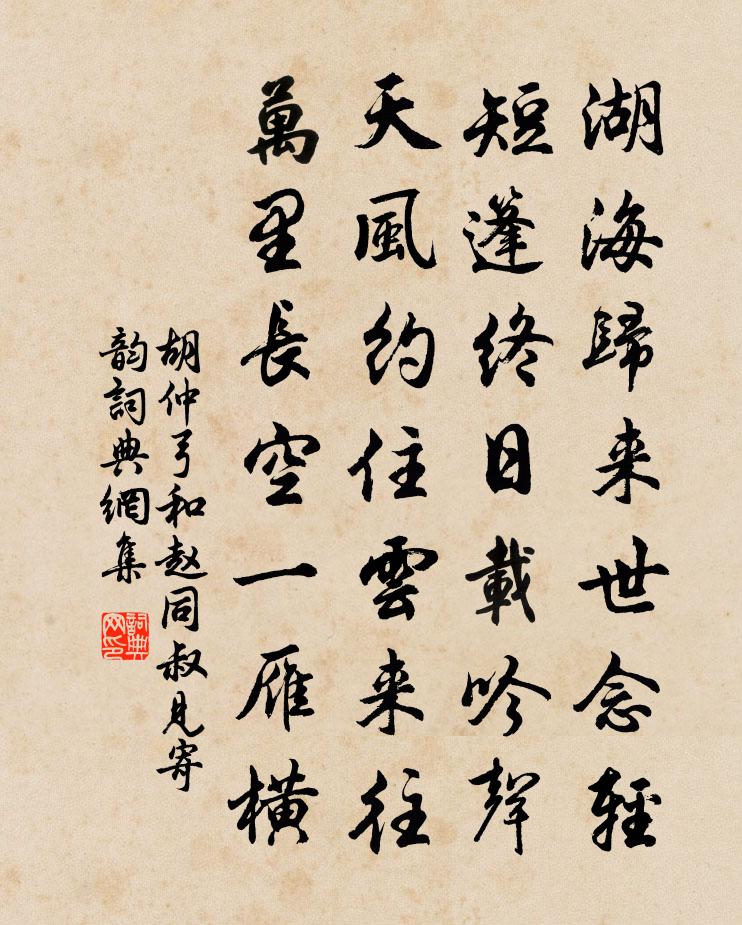 湖海歸来世念輕
短篷終日載吟聲
天風約住雲来往
萬里長空一雁横
胡仲弓和赵同叔見寄
韵詞典網集
詞典网印